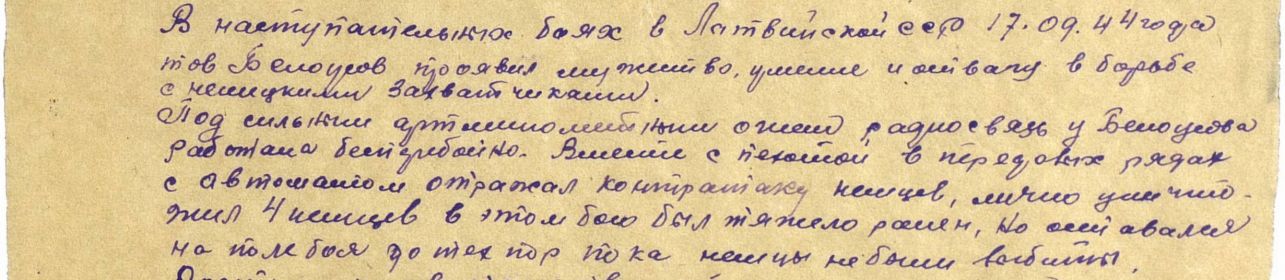 В наступательных боях в Латвийской ССР 17.09.44 года
тов Белоусов проявил мужество, умение и отвагу в борьбе
с немецкими захватчиками.
Под сильным артминометным огнем радиосвязь у Белоусова
работала бесперебойно. Вместе с пехотой в передовых рядах
с автоматом отражал контратаку немцев, лично уничто-
жил 4 немцев в этом бою был тяжело ранен, но оставался
на поле боя до тех пор пока немцы не были выбиты.